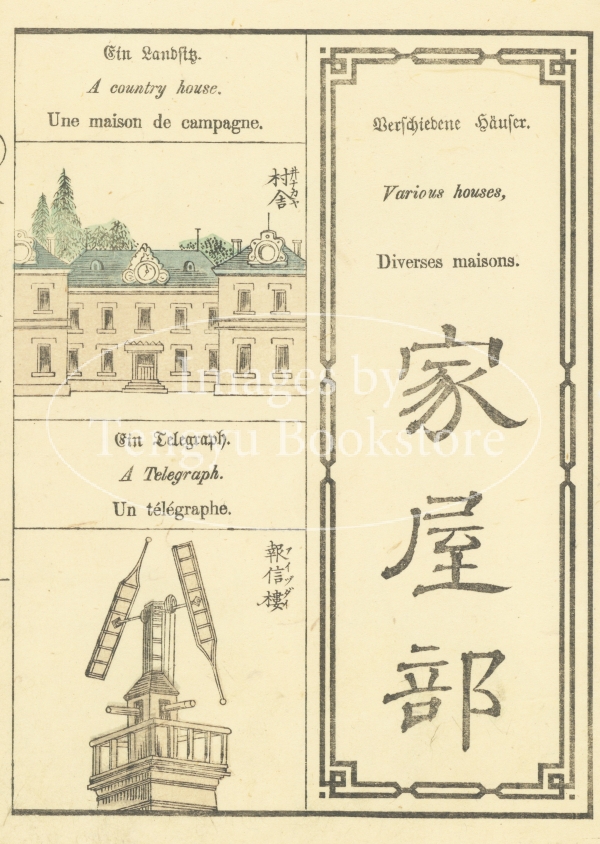 Verschiedene Häuser.
Various houses,
Diverses maisons.
家屋部
Ein Landsitz.
A country house.
Une maison de campagne.
村舎
井ナカヤ
Ein Telegraph.
A Telegraph.
Un télégraphe.
報信樓
アイヅダイ
Images by
Tengyu Bookstore